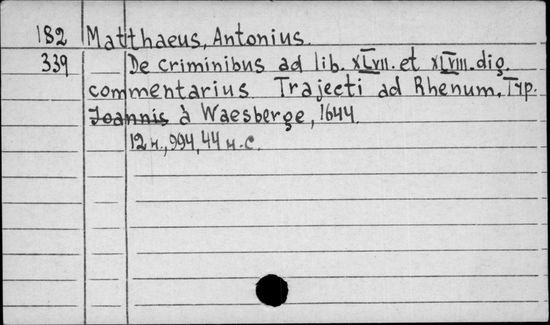 182 Matthaeus, Antonius.
339 De criminibus ad lib. XLVII. et XLVIII. dig.
commentarius Trajecti ad Rhenum, Typ.
Joannis à Waesberge, 1644
12 н., 994, 44 н. с.